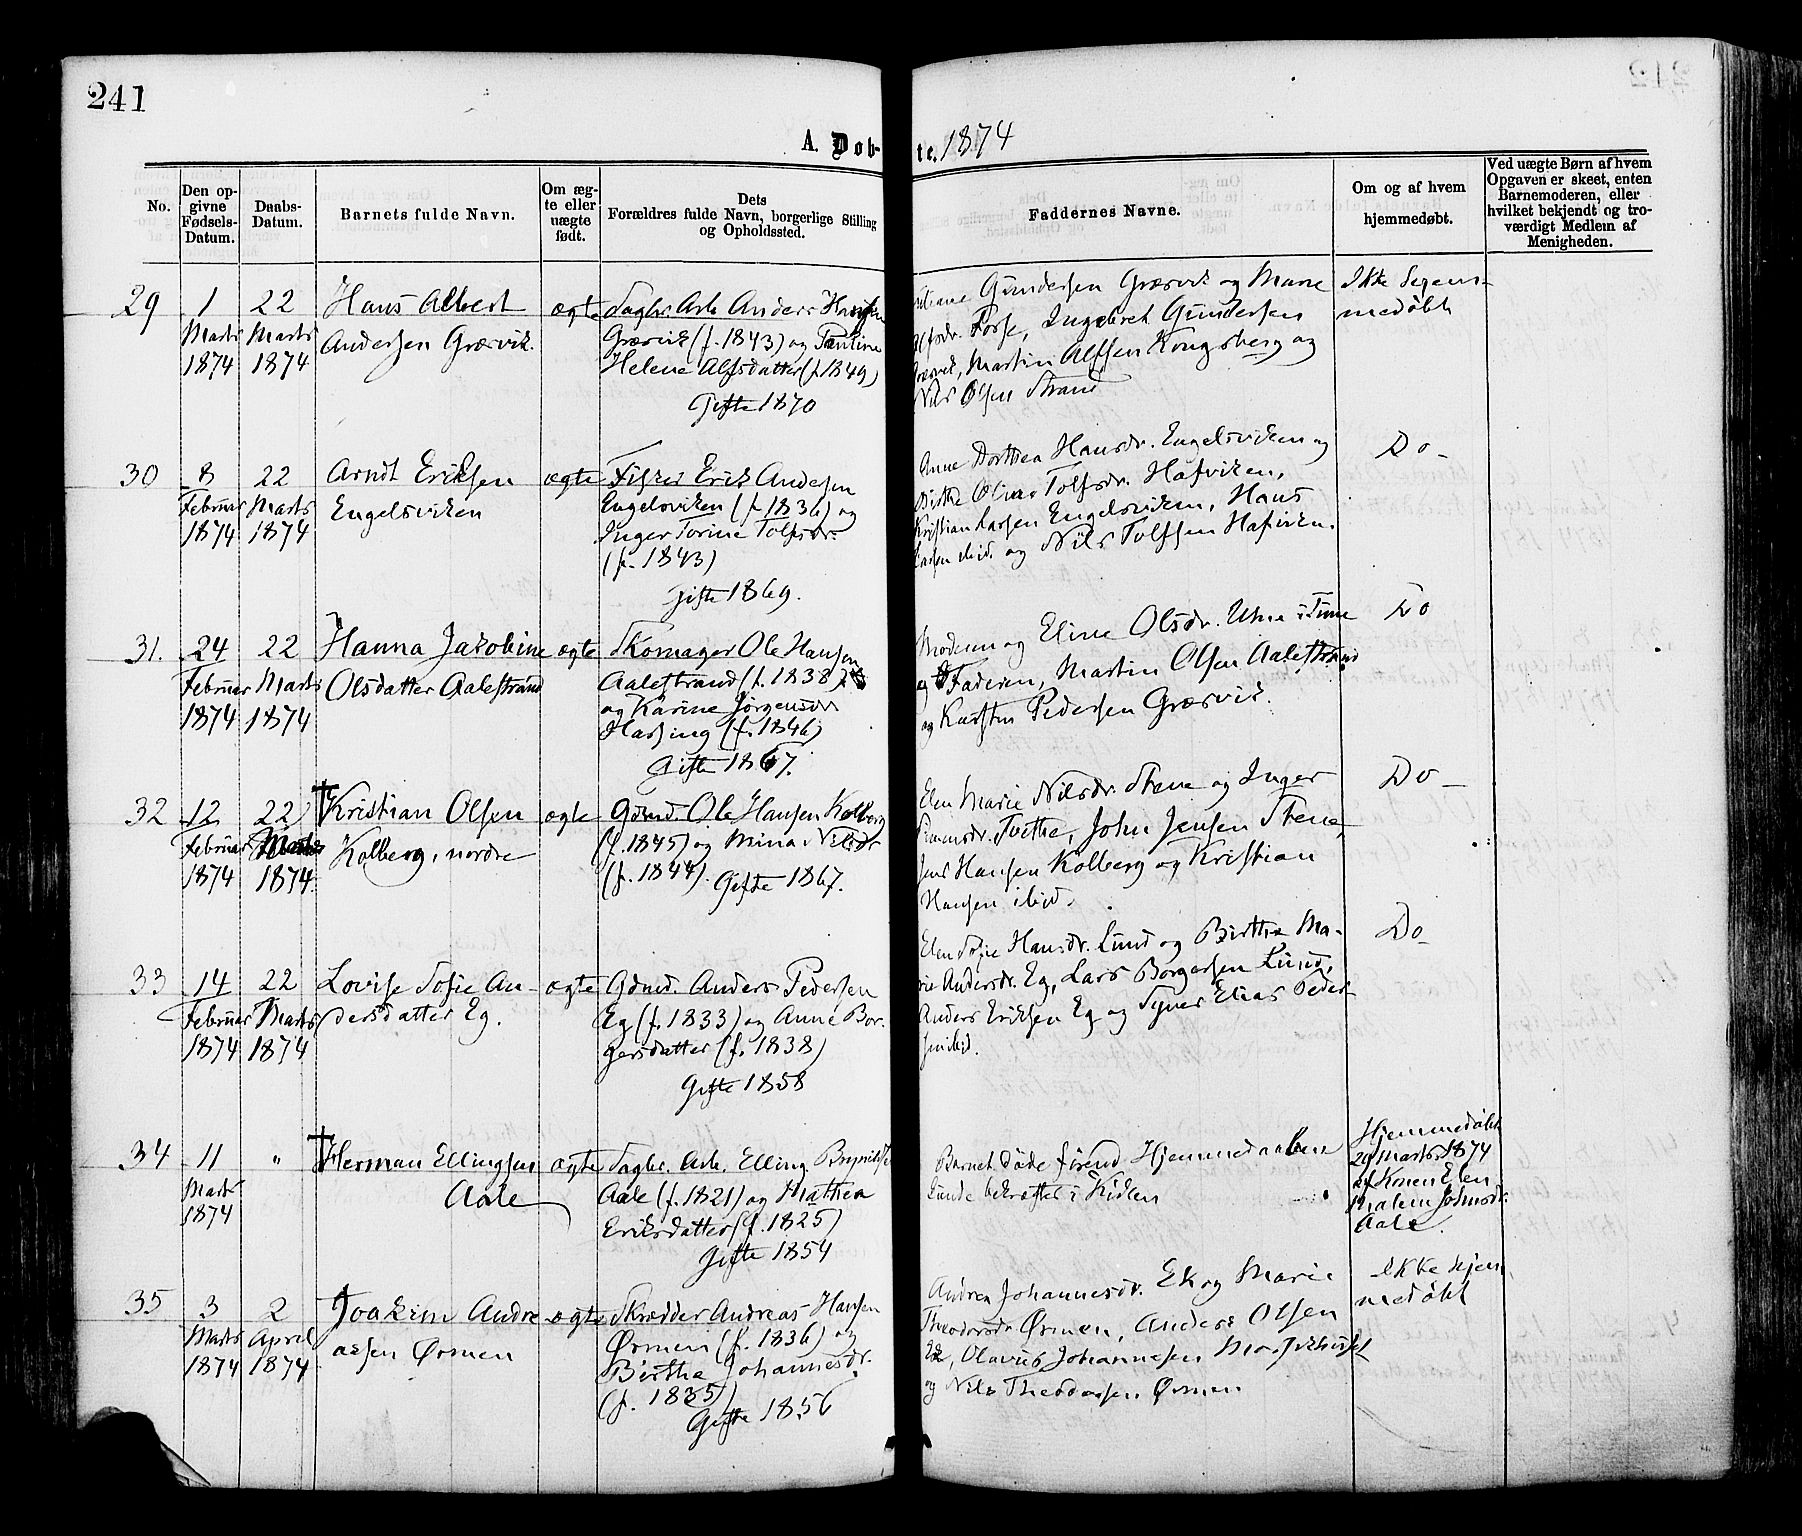 241
A. Døb-
te. 1874
No.
Den op-
givne
Fødsels-
Datum.
Daabs-
Datum.
Barnets fulde Navn.
Om æg-
te eller
uægte
født.
Dets
Forældres fulde Navn, borgerlige Stilling
og Opholdssted.
Faddernes Navne.
Om og af hvem
hjemmedøbt.
Ved uægte Børn af hvem
Opgaven er skeet, enten
Barnemoderen, eller
hvilket bekjendt og tro-
værdigt Medlem af
Menigheden.
29
1
Marts
1874
22
Marts
1874
Hans Albert
Andersen Græsvik.
ægte
Dagl. Arb. Anders Hansen
Græsvik (f. 1843) og Pauline
Helene Alfsdatter (f. 1849)
Gifte 1870
Gundersen Græsvik og Marie
Alfsdr. Torse, Ingebret Gundersen
Græsvik, Martin Alfsen Kongsberg og
Nils Olsen Strand
Ikke hjem-
medøbt
30
8
Februar
1874
22
Marts
1874
Arndt Eriksen
Engelsviken
ægte
Fisker Erik Andersen
Engelsviken (f. 1836) og
Inger Torine Tolfsdr.
(f. 1843)
Gifte 1869.
Anne Dorthea Hansdr. Engelsviken og
Birthe Oline Tolfsdr. Hafviken,
Kristian Larsen Engelsviken, Hans
Larsen ibid. og Nils Tolfsen Hafviken.
Do-
31.
24
Februar
1874
22
Marts
1874
Hanna Jakobine
Olsdatter Aalestrand
ægte
Skomager Ole Hansen
Aalestrand (f. 1838)
og Karine Jørgensdr
Hassing (f. 1846)
Gifte 1867.
Moderen og Eline Olsdr. Une i Tune
og Faderen, Martin Olsen Aalestrand
og Karsten Pedersen Græsvik.
Do
32
12
Februar
1874
22
Marts
1874.
† Kristian Olsen
Kolberg, nordre
ægte
Gdmd. Ole Hansen Kolberg
(f. 1845) og Mina Nilsdr
(f. 1844). Gifte 1867.
Elen Marie Nilsdr. Stene og Inger
Simensdr. Tvethe, John Jensen Stene,
Jens Hansen Kolberg og Kristian
Hansen ibid.
Do-
33
14
Februar
1874
22
Marts
1874
Lovise Sofie An-
dersdatter Eg.
ægte
Gdmd. Anders Pedersen
Eg (f. 1833) og Anne Bor-
gersdatter (f. 1838)
Gifte 1858
Elen Sofie Hansdr. Lund og Birthe Ma-
rie Andersdr. Eg, Lars Borgersen Lund,
Anders Eriksen Eg og Elias Peder-
sen ibid.
Do-
34
11
Marts
1874
"
† Herman Ellingsen
Aale
ægte
Dagl. Arb. Elling
Aale (f. 1821) og Mathea
Eriksdatter (f. 1825)
Gifte 1854
Barnet døde førend Hjemmedaaben
kunde bekræftes i Kirken
Hjemmedøbt
29 Marts 1874
af Konen Elen
Malene Johnsdr.
Aale
35
3
Marts
1874
2
April
1874
Joakim Andre-
assen Ørmen
ægte
Skrædder Andreas Hansen
Ørmen (f. 1836) og
Birthe Johannesdr.
(f. 1835)
Gifte 1856
Andrea Johannesdr. Ek og Marie
Theodorsdr Ørmen, Anders Olsen
Ek, Olavus Johannesen
og Nils Theodorsen Ørmen
Ikke hjem-
medøbt